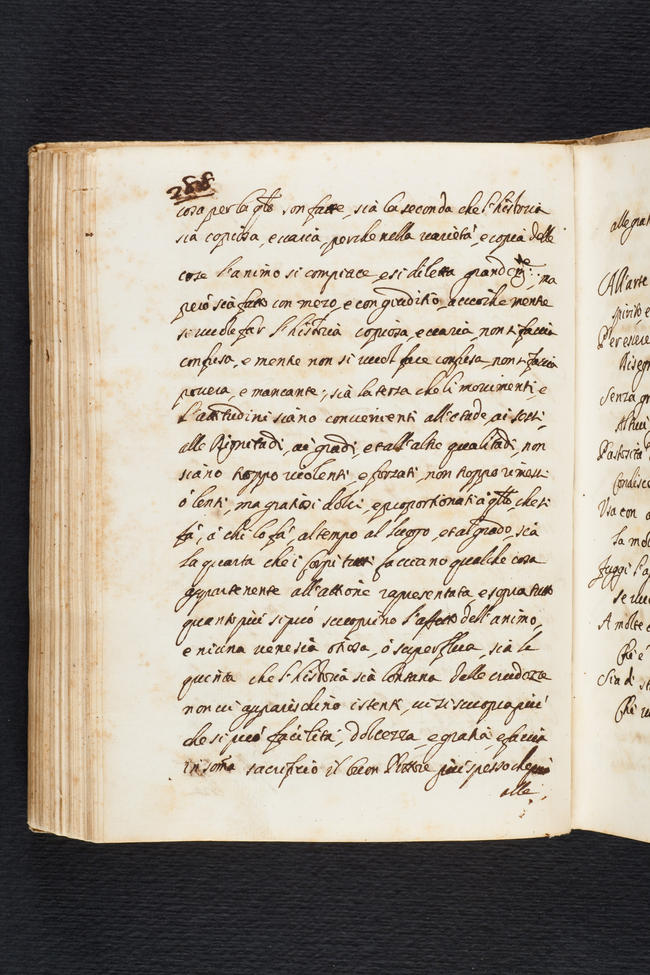 288
cosa per la q.to son fatte, sià la seconda che l'historia
sià copiosa, e varia, perche nella varietà, e copia delle
cose l'animo si compiace, e si diletta grandem.te, ma
però sià fatto con mezo, e con giuditio, accioche mentre
si vuole far l'historia copiosa, e varia non si faccia
confusa, e mentre non si vuol fare confusa, non si faccia
povera, e mancante; sià la terza che li movimenti, e
l'attitudini siano convenienti all'etade, ai sessi,
alle Dignitadi, ai gradi, et all'altre qualitadi, non
siano troppo violenti, e forzati, non troppo rimessi
ò lenti, ma gratiosi dolci, e proportionati à q.to, che si
fà, à chi lo fà, al tempo al luogo, et al grado, sià
la quarta che i corpi tutti facciano qualche cosa
appartenente all'attione rapresentata, e sopra tutto
quanto più si può scuoprino l'affetto dell'animo,
e niuna vene sià otiosa, ò superflua, sià la
quinta che l'historia sià lontana dalle crudezze
non vi apparischino i stenti, vi si scuopra più
che si può facilità, dolcezza, e gratia, e faccia
in soma sacrificio il buon Pittore più spesso che può
alle
alle grat
All'arte
spirito e
Per esser
Disegn
Senza gr
Altrui
Condisc
Usa con
La mol
Fuggi l'a
A molte
Chi è
Sia di
Chi